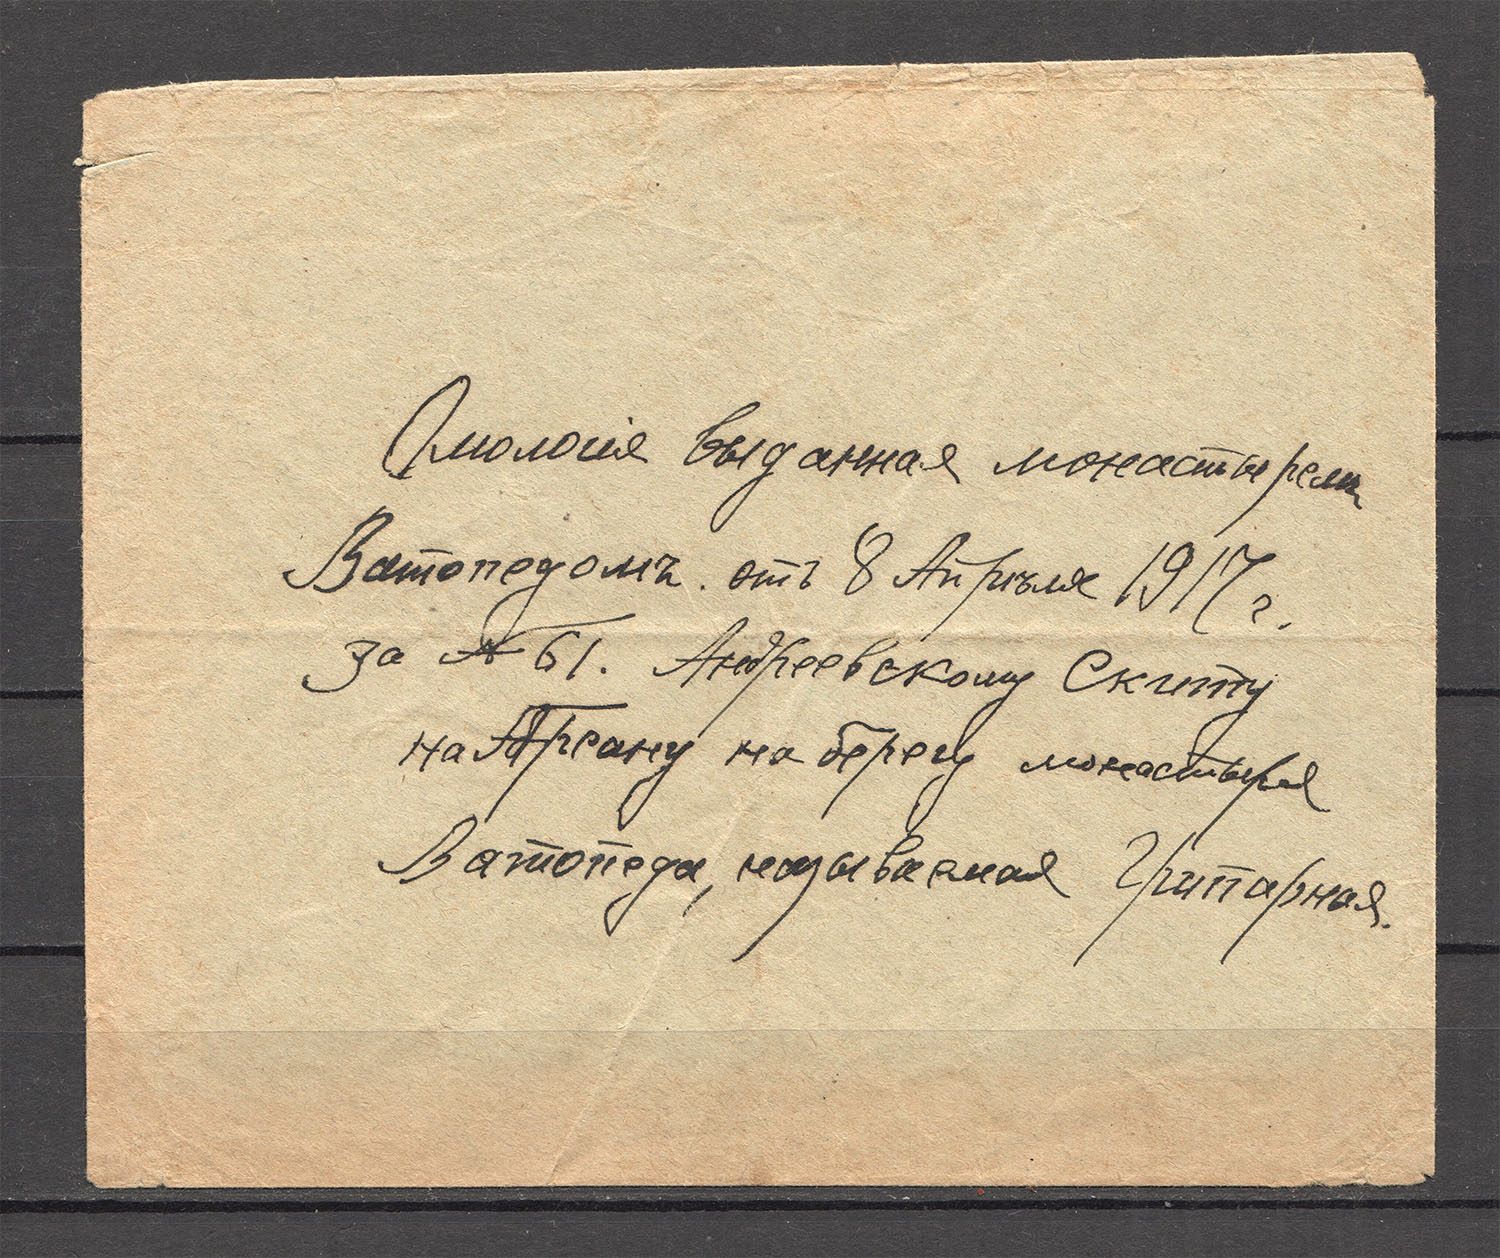 Омологія выданная монастырем
Ватопедомъ. отъ 8 Апрѣля 1917 г.
за № 61. Андреевскому Скиту
на Арсану на берегу монастыря
Ватопеда, называемая Грипарная.